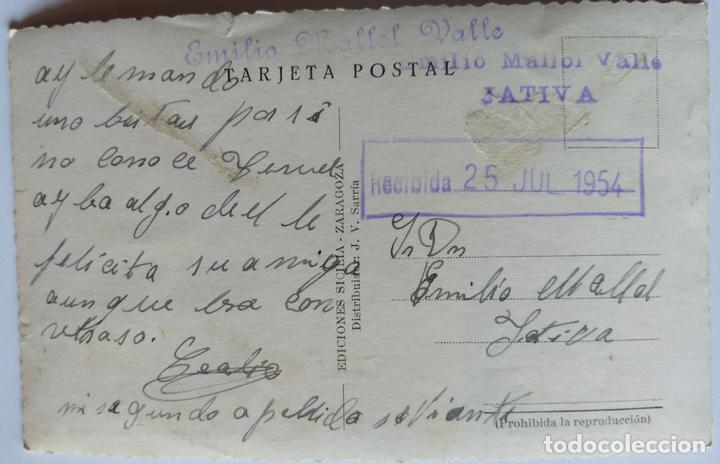 Emilio Mallol Valle
Emilio Mallol Valle
JATIVA
TARJETA POSTAL
Recibida 25 JUL 1954
ay le mando
uno bistas por si
no conoce Teruel
ay ba algo del le
felicita su amiga
aun que bra con
retraso.
mi segundo apellido es Vicente
EDICIONES SICILIA - ZARAGOZA
Distribuidor: J. V. Sarría
Sr Dn
Emilio Mallol
Jativa
(Prohibida la reproducción)
todocoleccion.net